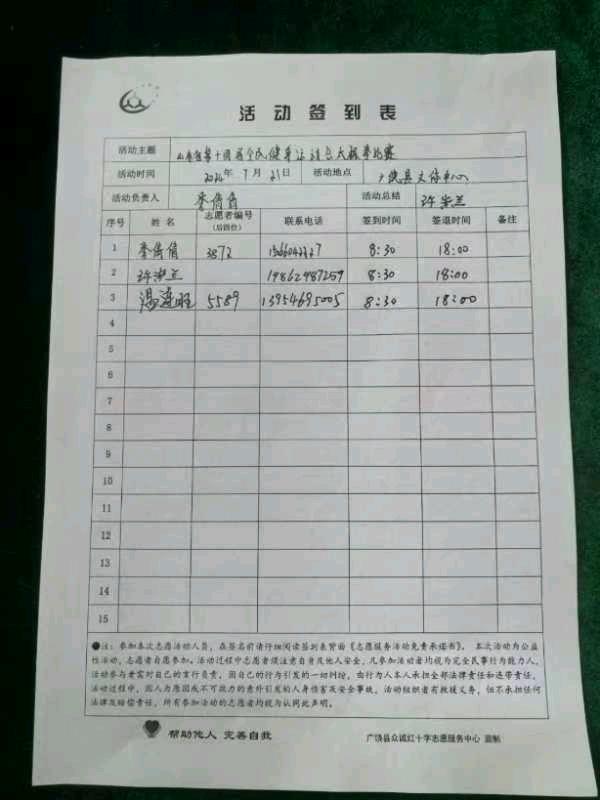 活动签到表
活动主题 山东省第十届全民健身运动会大跃拳比赛
活动时间 2024年7月21日 活动地点 广饶县文体中心
活动负责人 李倩倩 活动总结
序号 姓名 志愿者编号(后四位) 联系电话 签到时间 签退时间 备注
1 李倩倩 3872 8:30 18:00
2 19862487259 8:30 18:00
3 5589 13954695005 8:30 18:00
4
5
6
7
8
9
10
11
12
13
14
15
●注:参加本次志愿活动人员,在签名前请仔细阅读签到表背面《志愿服务活动免责承诺书》。本次活动为公益
性活动,志愿者自愿参加。活动过程中志愿者须注意自身及他人安全,凡参加活动者均视为完全民事行为能力人。
活动参与者需对自己的言行负责,因自己的行为引发的一切纠纷,由行为人本人承担全部法律责任和连带责任。
活动过程中,因人为原因或不可抗力的意外引发的人身伤害及安全事故,活动组织者有救援义务,但不承担任何
法律及赔偿责任,所有参加活动的志愿者均视为认同此声明。
帮助他人 完善自我 广饶县众诚红十字志愿服务中心 监制